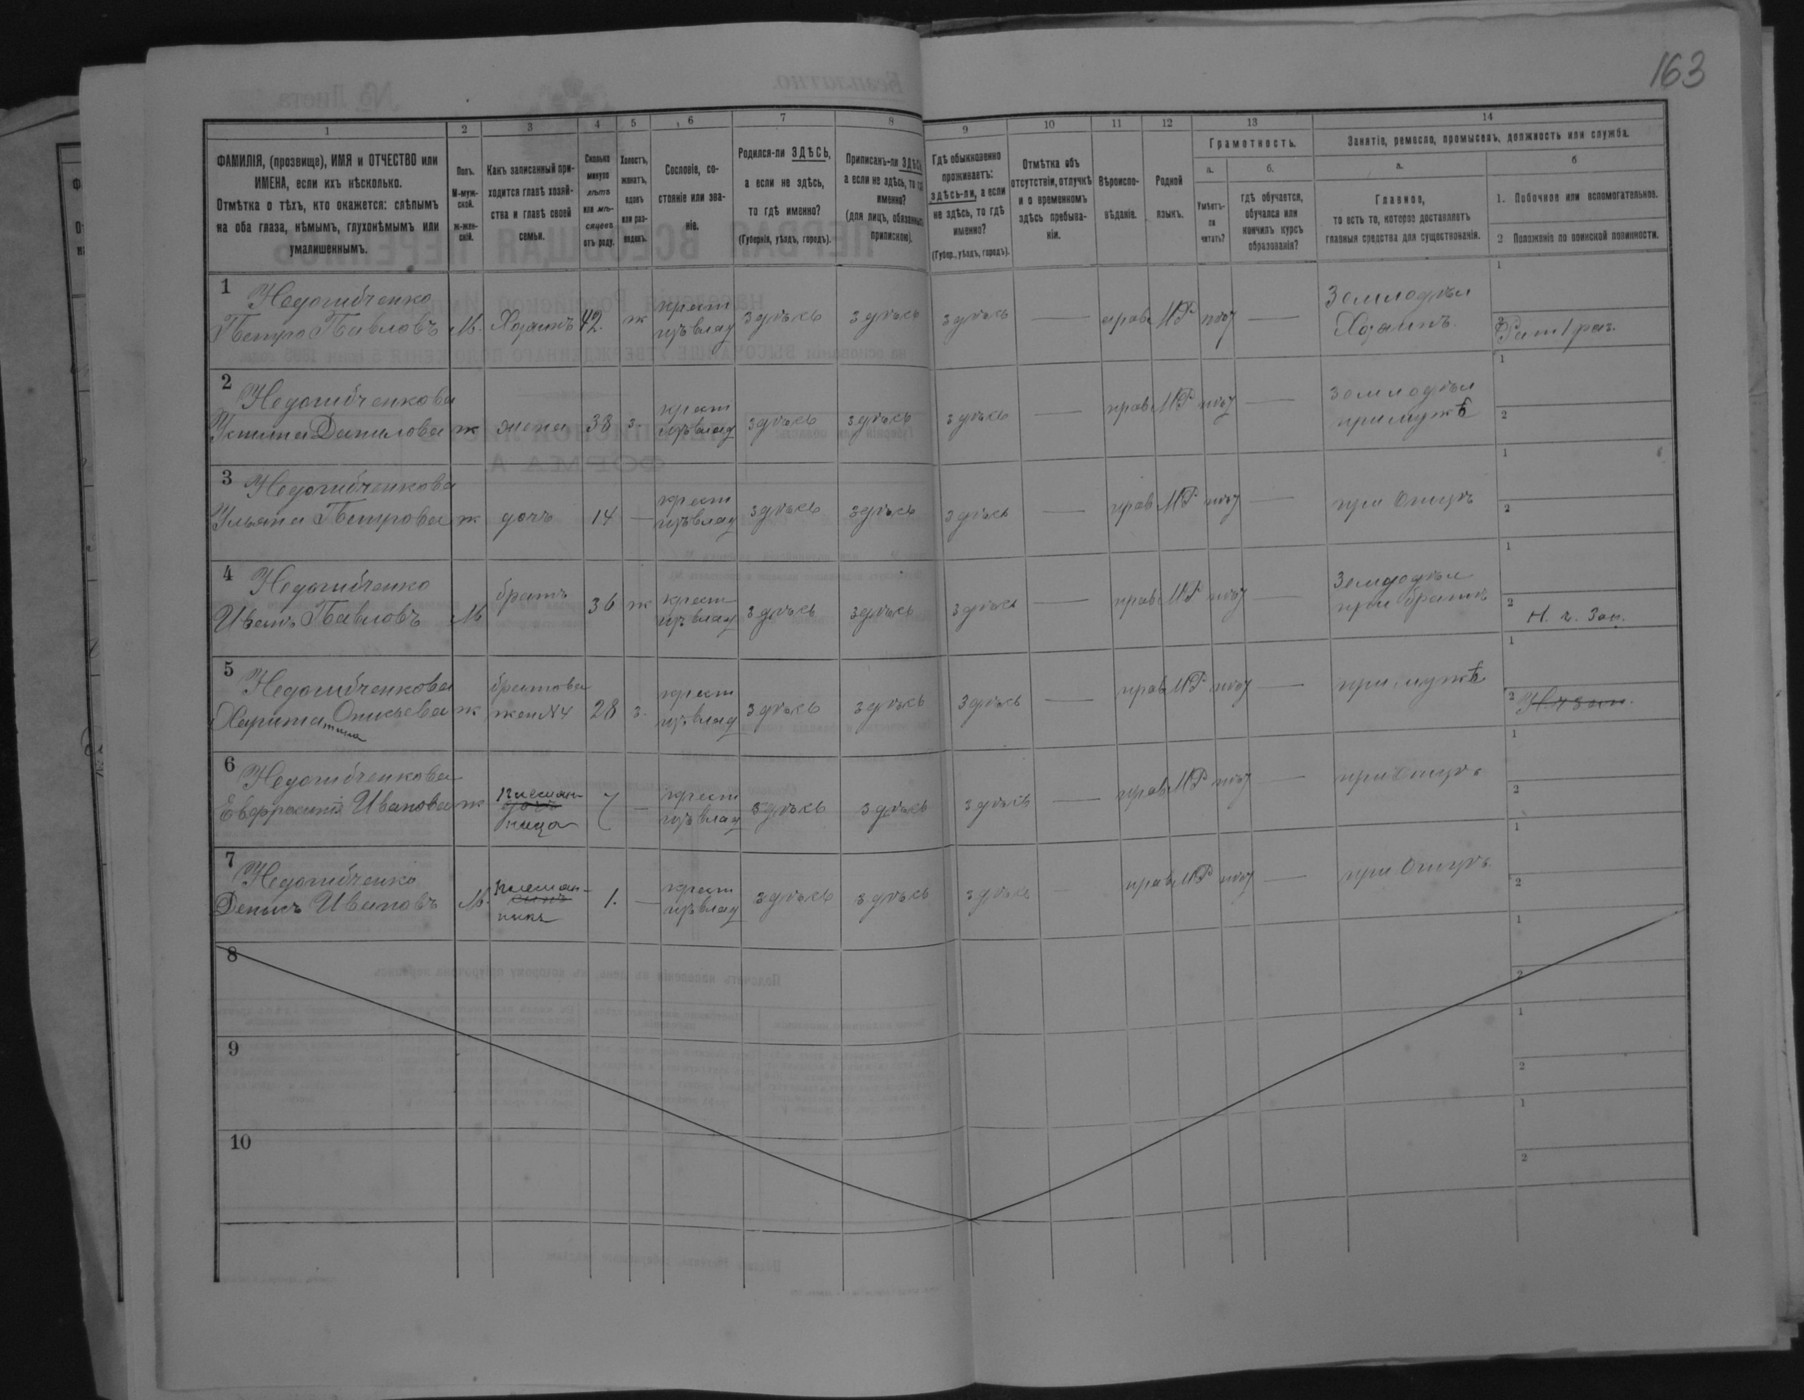 163
1 2 3 4 5 6 7 8 9 10 11 12 13 14
ФАМИЛІЯ, (прозвище), ИМЯ и ОТЧЕСТВО или
ИМЕНА, если ихъ нѣсколько.
Отмѣтка о тѣхъ, кто окажется: слѣпымъ
на оба глаза, нѣмымъ, глухонѣмымъ или
умалишеннымъ.
Полъ.
М-муж-
ской.
Ж-жен-
скій.
Какъ записанный при-
ходится главѣ хозяй-
ства и главѣ своей
семьи.
Сколько
минуло
лѣтъ
или мѣ-
сяцевъ
отъ роду.
Холостъ,
женатъ,
вдовъ
или раз-
веденъ.
Сословіе, со-
стояніе или зва-
ніе.
Родился-ли ЗДѢСЬ,
а если не здѣсь,
то гдѣ именно?
(Губернія, уѣздъ, городъ).
Приписанъ-ли ЗДѢСЬ,
а если не здѣсь, то гдѣ
именно?
(для лицъ, обязанныхъ
припискою).
Гдѣ обыкновенно
проживаетъ:
здѣсь-ли, а если
не здѣсь, то гдѣ
именно?
(Губер., уѣздъ, городъ).
Отмѣтка объ
отсутствіи, отлучкѣ
и о временномъ
здѣсь пребыва-
ніи.
Вѣроиспо-
вѣданіе.
Родной
языкъ.
Грамотность.
а.
Умѣетъ-
ли
читать?
б.
гдѣ обучается,
обучался или
кончилъ курсъ
образованія?
Занятіе, ремесло, промыселъ, должность или служба.
а.
Главное,
то есть то, которое доставляетъ
главныя средства для существованія.
б
1. Побочное или вспомогательное.
2 Положеніе по воинской повинности.
1 Недогибченко
Петро Павловъ М. Хозяинъ 42. ж крест изъ влад здѣсь здѣсь здѣсь — прав МР нѣт — Земледѣл
Хозяинъ 1 2 Рат 1 раз.
2 Недогибченкова
Данилова ж жена 38 з. крест изъ влад здѣсь здѣсь здѣсь — прав МР нѣт — земледѣл
при мужѣ 1 2
3 Недогибченкова
Ульяна Петрова ж дочь 14 — крест изъ влад здѣсь здѣсь здѣсь — прав МР нѣт — при Отцѣ 1 2
4 Недогибченко
Иванъ Павловъ М братъ 36 ж крест изъ влад здѣсь здѣсь здѣсь — прав МР нѣт — Земледѣл
при братѣ 1 2 Н. ч. Зап.
5 Недогибченкова
Харитина ж братова
жена №4 28 з. крест изъ влад здѣсь здѣсь здѣсь — прав МР нѣт — при мужѣ 1 2 Н ч зап.
6 Недогибченкова
Евфросинія Иванова ж племян-
дочь
ница 7 — крест изъ влад здѣсь здѣсь здѣсь — прав МР нѣт — при Отцѣ 1 2
7 Недогибченко
Денисъ Ивановъ М. племян-
сынъ
никъ 1. — крест изъ влад здѣсь здѣсь здѣсь — прав МР нѣт — при Отцѣ 1 2
8 1 2
9 1 2
10 1 2